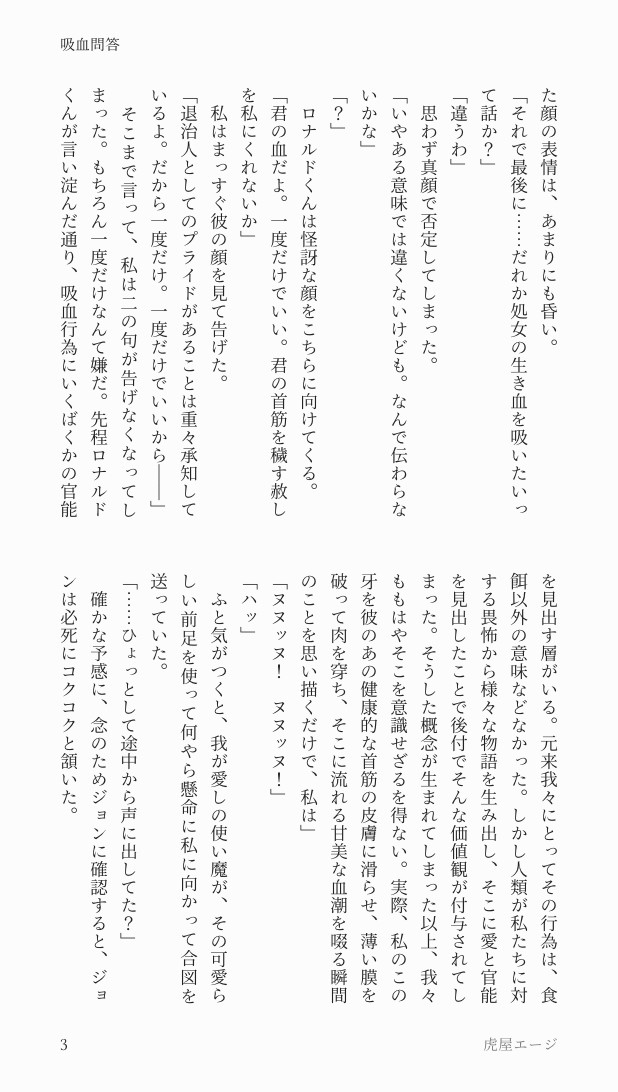 吸血問答
た顔の表情は、あまりにも昏い。
「それで最後に……だれか処女の生き血を吸いたいっ
て話か？」
「違うわ」
　思わず真顔で否定してしまった。
「いやある意味では違くないけども。なんで伝わらな
いかな」
「？」
　ロナルドくんは怪訝な顔をこちらに向けてくる。
「君の血だよ。一度だけでいい。君の首筋を穢す赦し
を私にくれないか」
　私はまっすぐ彼の顔を見て告げた。
「退治人としてのプライドがあることは重々承知して
いるよ。だから一度だけ。一度だけでいいから――」
　そこまで言って、私は二の句が告げなくなってし
まった。もちろん一度だけなんて嫌だ。先程ロナルド
くんが言い淀んだ通り、吸血行為にいくばくかの官能
を見出す層がいる。元来我々にとってその行為は、食
餌以外の意味などなかった。しかし人類が私たちに対
する畏怖から様々な物語を生み出し、そこに愛と官能
を見出したことで後付でそんな価値観が付与されてし
まった。そうした概念が生まれてしまった以上、我々
ももはやそこを意識せざるを得ない。実際、私のこの
牙を彼のあの健康的な首筋の皮膚に滑らせ、薄い膜を
破って肉を穿ち、そこに流れる甘美な血潮を啜る瞬間
のことを思い描くだけで、私は」
「ヌヌッヌ！　ヌヌッヌ！」
「ハッ」
　ふと気がつくと、我が愛しの使い魔が、その可愛ら
しい前足を使って何やら懸命に私に向かって合図を
送っていた。
「……ひょっとして途中から声に出してた？」
　確かな予感に、念のためジョンに確認すると、ジョ
ンは必死にコクコクと頷いた。
3
虎屋エージ